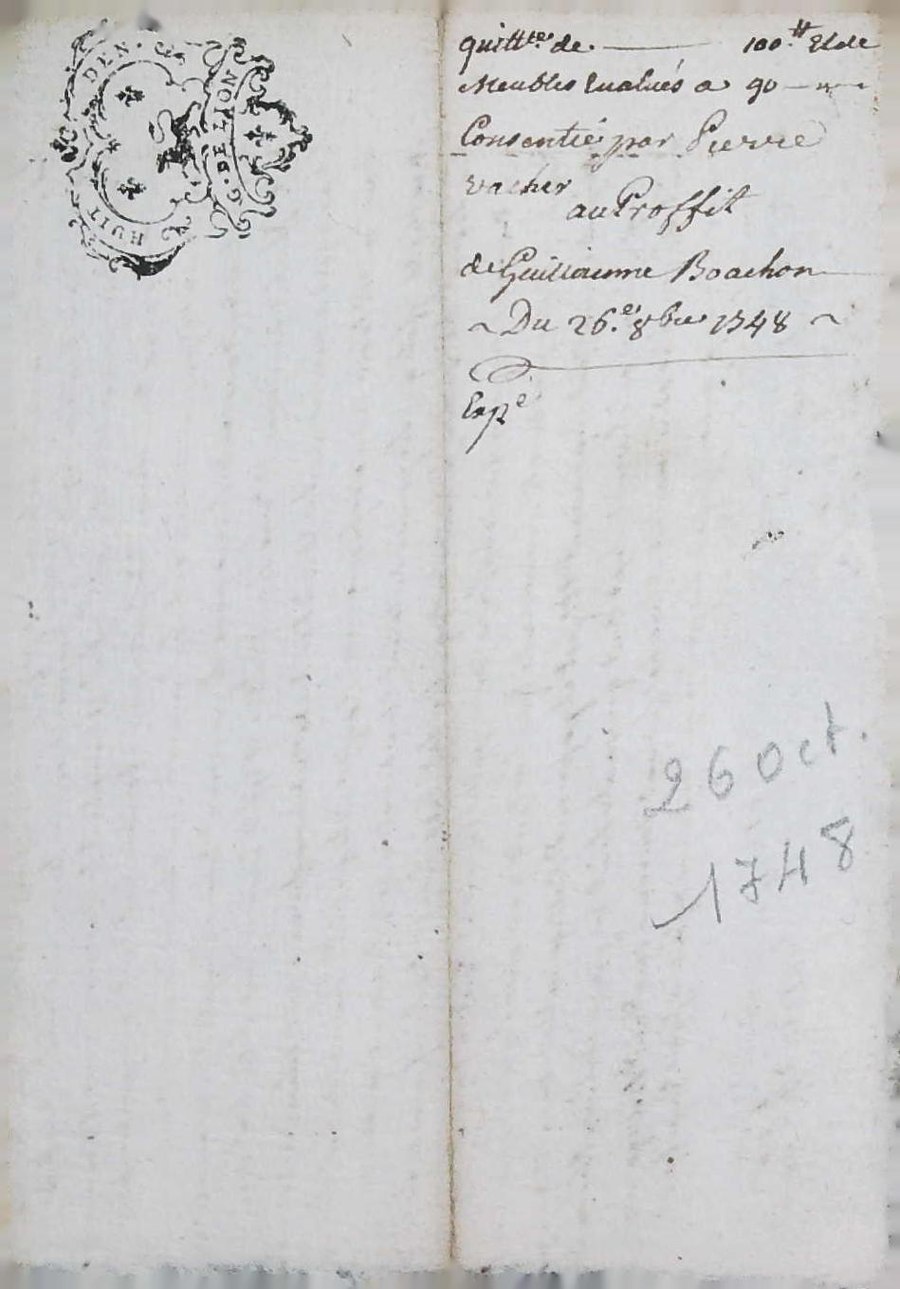 HUIT DEN.
G. DE LION
quittce de. 100.tt Et de
Meubles Evalués a 90
Consentie par Pierre
vacher
au Proffit
de Guillaume Boachon
Du 26.e 8bre 1748
Expe
26 oct.
1748